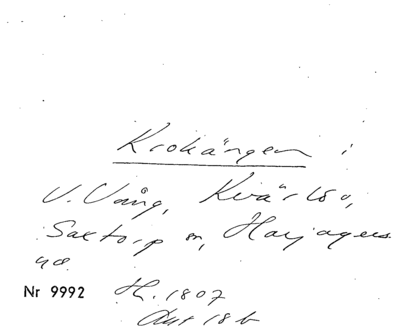 Krokängen i
V. Vång, Kvärlöv,
Saxtorp sn, Harjagers
hd.
Nr 9992 Th. 1807
Akt 18 b